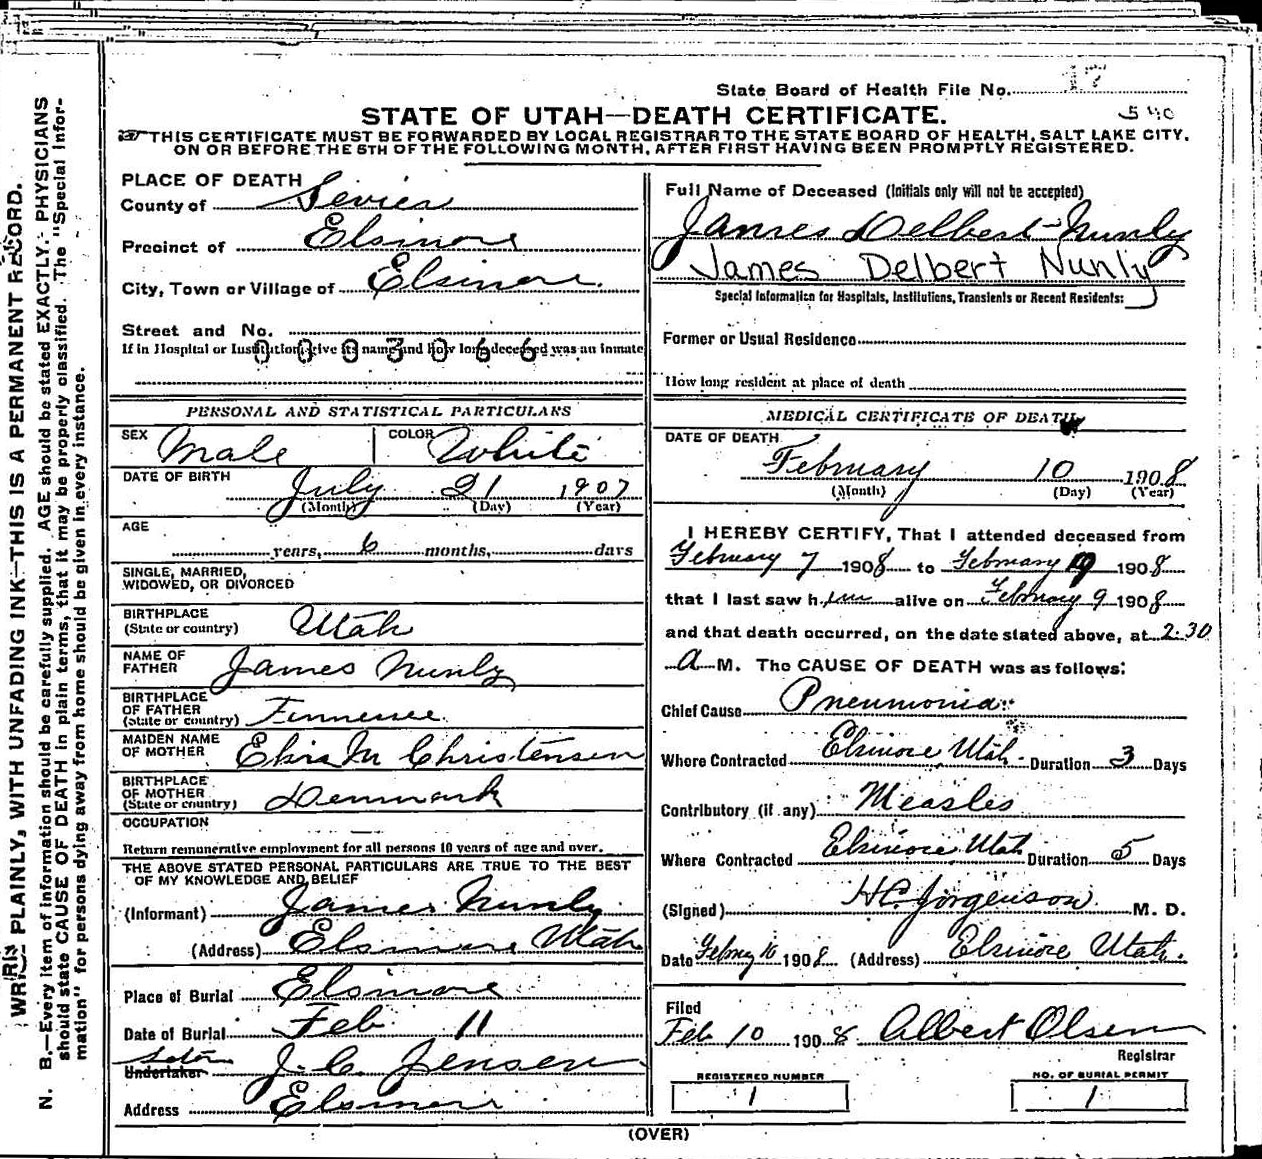 State Board of Health File No. 17
STATE OF UTAH—DEATH CERTIFICATE.
540
THIS CERTIFICATE MUST BE FORWARDED BY LOCAL REGISTRAR TO THE STATE BOARD OF HEALTH, SALT LAKE CITY,
ON OR BEFORE THE 5TH OF THE FOLLOWING MONTH, AFTER FIRST HAVING BEEN PROMPTLY REGISTERED.
WRITE PLAINLY, WITH UNFADING INK—THIS IS A PERMANENT RECORD.
N. B.—Every item of information should be carefully supplied. AGE should be stated EXACTLY. PHYSICIANS
should state CAUSE OF DEATH in plain terms, that it may be properly classified. The "Special Infor-
mation" for persons dying away from home should be given in every instance.
PLACE OF DEATH
County of Sevier
Precinct of Elsinore
City, Town or Village of Elsinore
Street and No.
If in Hospital or Institution, give its name and how long deceased was an inmate
0003066
PERSONAL AND STATISTICAL PARTICULARS
SEX Male COLOR White
DATE OF BIRTH July 21 1907
(Month) (Day) (Year)
AGE
years, 6 months, days
SINGLE, MARRIED,
WIDOWED, OR DIVORCED
BIRTHPLACE
(State or country) Utah
NAME OF
FATHER James Nunly
BIRTHPLACE
OF FATHER
(State or country) Tennessee
MAIDEN NAME
OF MOTHER M Christensen
BIRTHPLACE
OF MOTHER
(State or country) Denmark
OCCUPATION
Return remunerative employment for all persons 10 years of age and over.
THE ABOVE STATED PERSONAL PARTICULARS ARE TRUE TO THE BEST
OF MY KNOWLEDGE AND BELIEF
(Informant) James Nunly
(Address) Elsinore Utah
Place of Burial Elsinore
Date of Burial Feb 11
Sexton
Undertaker J. C. Jensen
Address Elsinore
Full Name of Deceased (Initials only will not be accepted)
James Delbert Nunly
James Delbert Nunly
Special Information for Hospitals, Institutions, Transients or Recent Residents:
Former or Usual Residence
How long resident at place of death
MEDICAL CERTIFICATE OF DEATH
DATE OF DEATH
February 10 1908
(Month) (Day) (Year)
I HEREBY CERTIFY, That I attended deceased from
February 7 1908 to February 9 1908
that I last saw him alive on February 9 1908
and that death occurred, on the date stated above, at 2:30
a M. The CAUSE OF DEATH was as follows:
Chief Cause Pneumonia
Where Contracted Elsinore Utah. Duration 3 Days
Contributory (if any) Measles
Where Contracted Elsinore Utah Duration 5 Days
(Signed) H C Jorgenson M. D.
Date Febru 10 1908 (Address) Elsinore Utah.
Filed
Feb 10 1908 Albert Olsen
Registrar
REGISTERED NUMBER
1
NO. OF BURIAL PERMIT
1
(OVER)